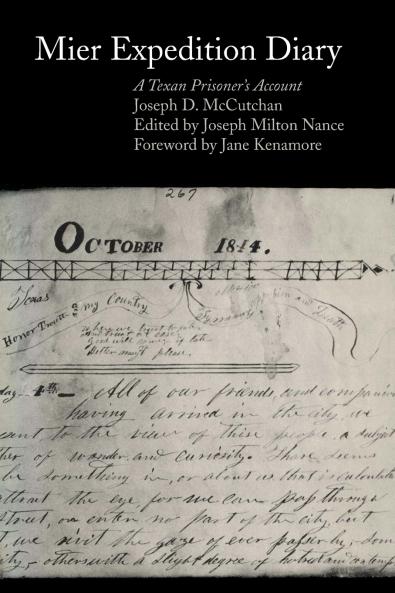 Mier Expedition Diary
A Texan Prisoner's Account
Joseph D. McCutchan
Edited by Joseph Milton Nance
Foreword by Jane Kenamore
267
October 1844.
Texas
my Country
Honor Truth
Tyranny
him and
Better must please.
day 4th All of our friends, and companions
having arrived in the city, we
to the view of these people, a subject
of wonder and curiosity. There seems
be something in, or about us that is calculated
attract the eye, for we can pass through a
street, or enter no part of the city, but
t, we visit the gaze of ever passer by, som
ity, others with a slight degree of hatred and contemp